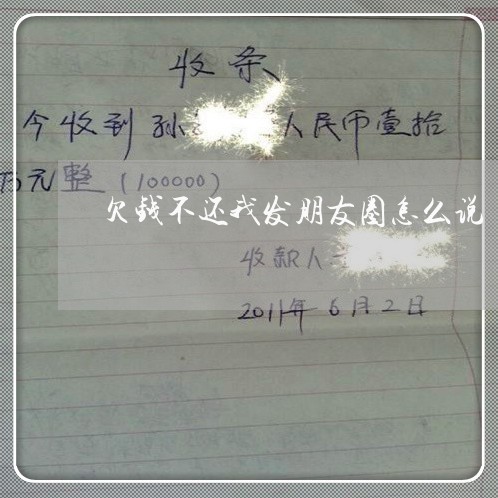 收条
今收到孙 人民币壹拾
万元整(100000)
欠钱不还我发朋友圈怎么说
收款人
2011年6月2日